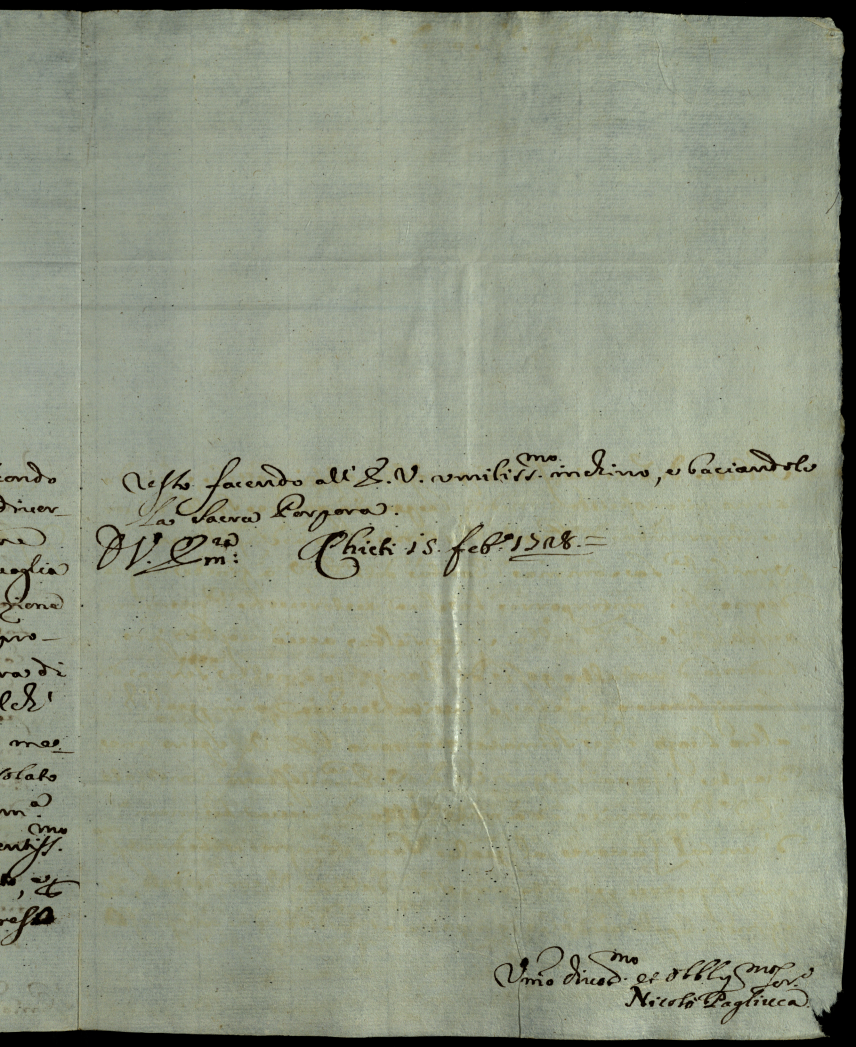 condo
diver-
ne
voglia
gione
pro-
ra di
lch'
mez-
solato
m.ª
entiss.mo
to, et
resta
resto facendo all'E. V. umiliss.mo inchino, e baciandole
la Sacra Porpora.
D V. Em.ra Chieti 15. feb.º 1728.=
Um̃o divod.mo et obbligmo ser.e
Nicolò Pagliucca